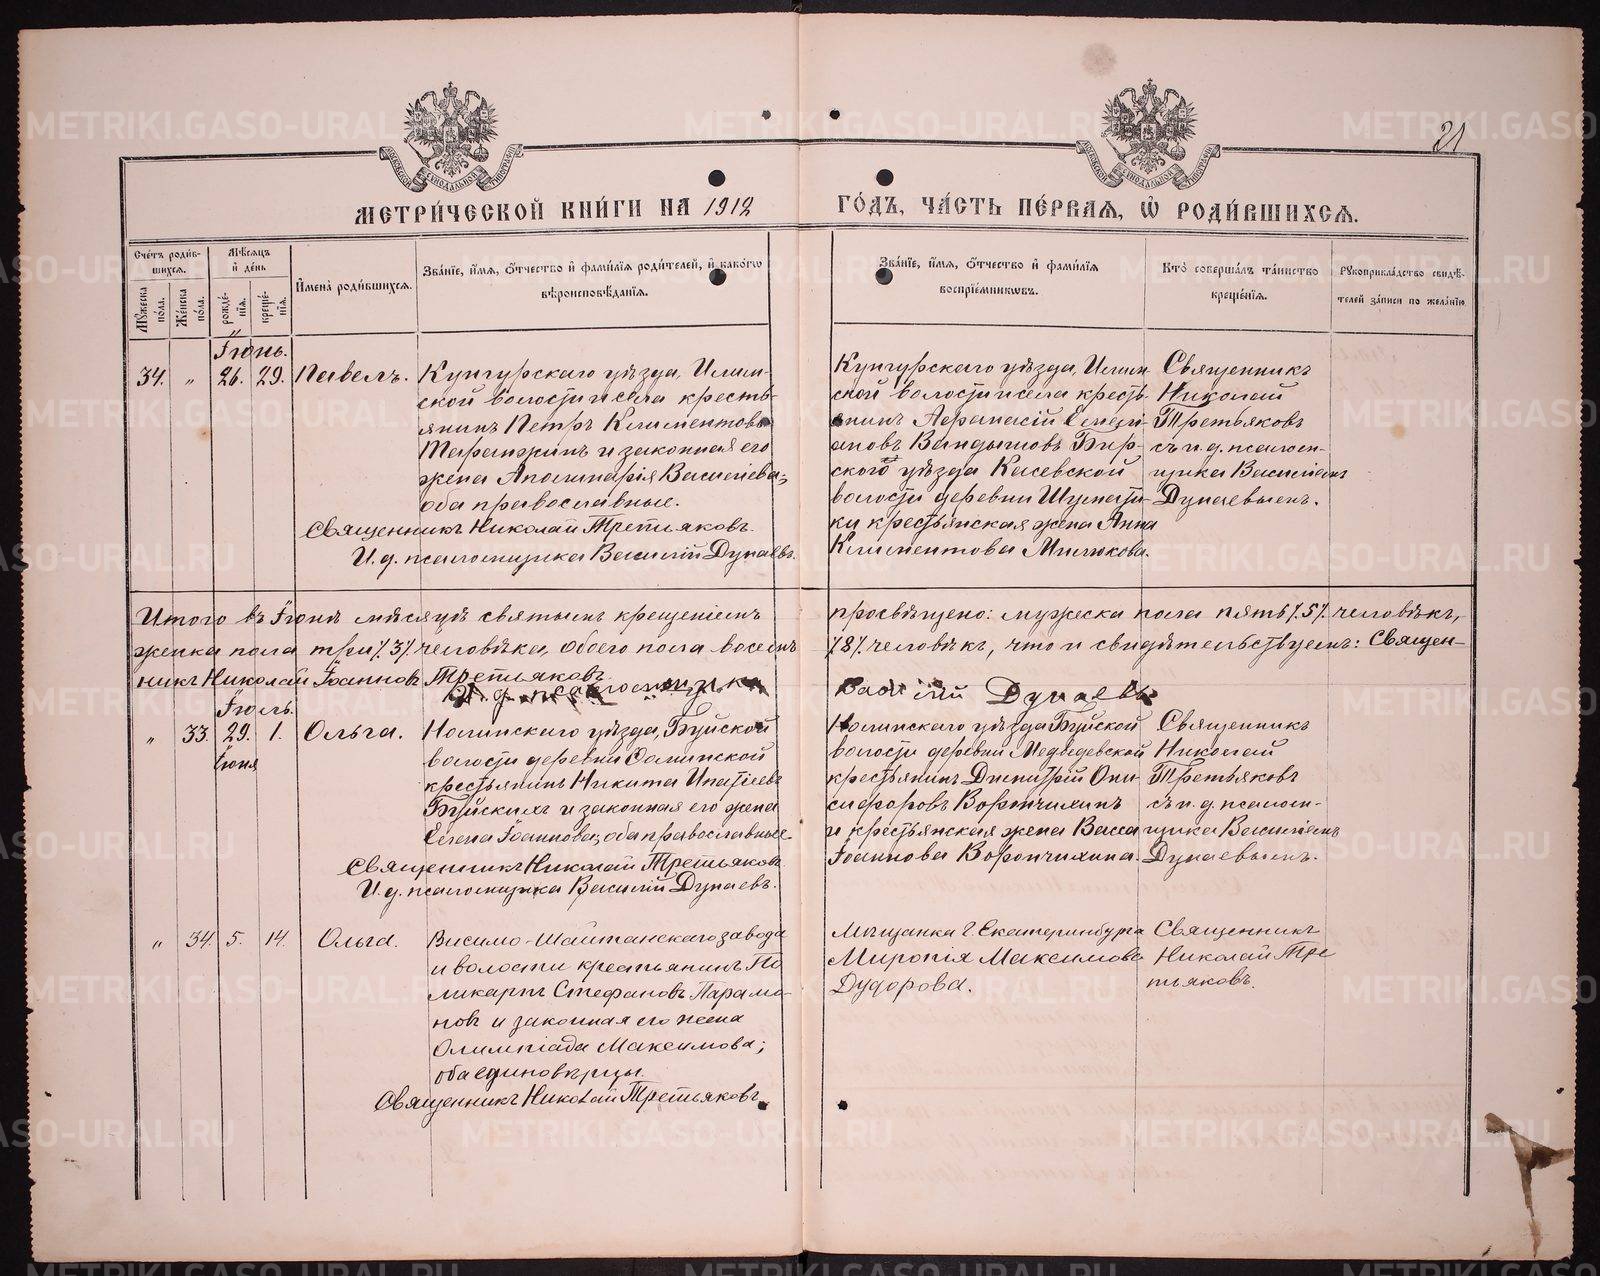 21
МЕТРИ́ЧЕСКОЙ КНИ́ГИ НА 1912 ГО́ДЪ, ЧА́СТЬ ПЕ́РВАЯ, Ѡ РОДИ́ВШИХСЯ.
Сче́тъ роди́в-
шихся.
Мѣ́сяцъ
и де́нь
Му́жеска
по́ла.
Же́нска
по́ла.
рожде́-
нія.
креще́-
нія.
Имена̀ роди́вшихся.
Зва́ніе, и́мя, о́тчество и фами́лія роди́телей, и како́гѡ
вѣроисповѣ́данія.
Зва́ніе, и́мя, о́тчество и фами́лія
воспріе́мникѡвъ.
Кто̀ соверша́лъ та́инство
креще́нія.
Рукоприкла́дство свидѣ́-
телей за́писи по жела́нію
Іюнь.
34. „ 26. 29. Павелъ.
Кунгурскаго уѣзда, Илим-
ской волости и села кресть-
янинъ Петръ Климентовъ
и законная его
жена Аполинарія Васильева,
оба православные.
Священникъ Николай Третьяковъ.
И. д. псаломщика Василій Дунаевъ.
Кунгурскаго уѣзда, Илим-
ской волости и села кресть-
янинъ Аѳанасій
Бир-
скаго уѣзда Касевской
волости деревни
ки крестьянская жена Анна
Климентова Милюкова.
Священникъ
Николай
Третьяковъ
съ и. д. псалом-
щика Василіемъ
Дунаевымъ.
Итого въ Іюнѣ мѣсяцѣ святымъ крещеніемъ просвѣщено: мужеска пола пять /5/ человѣкъ,
женска пола три /3/ человѣка, обоего пола восемь /8/ человѣкъ, что и свидѣтельствуемъ: Священ-
никъ Николай Іоанновъ Третьяковъ.
И. д. псаломщика Василій Дунаевъ
Іюль.
„ 33. 29. 1. Ольга.
Іюня
Нолинскаго уѣзда, Буйской
волости деревни
крестьянинъ Никита Ипатіевъ
Буйскихъ и законная его жена
Елена Іоаннова, оба православные
Священникъ Николай Третьяковъ
И. д. псаломщика Василій Дунаевъ.
Нолинскаго уѣзда Буйской
волости деревни Медведевской
крестьянинъ Димитрій Они-
сифоровъ Ворончихинъ
и крестьянская жена Васса
Іоаннова Ворончихина.
Священникъ
Николай
Третьяковъ
съ и. д. псалом-
щика Василіемъ
Дунаевымъ.
„ 34. 5. 14. Ольга.
Висимо-Шайтанскаго завода
и волости крестьянинъ По
ликарпъ Стефановъ Парамо-
новъ и законная его жена
Олимпіада Максимова;
оба единовѣрцы.
Священникъ Николай Третьяковъ.
Мѣщанка г. Екатеринбурга
Миропія Максимова
Дудорова.
Священникъ
Николай Тре
тьяковъ.